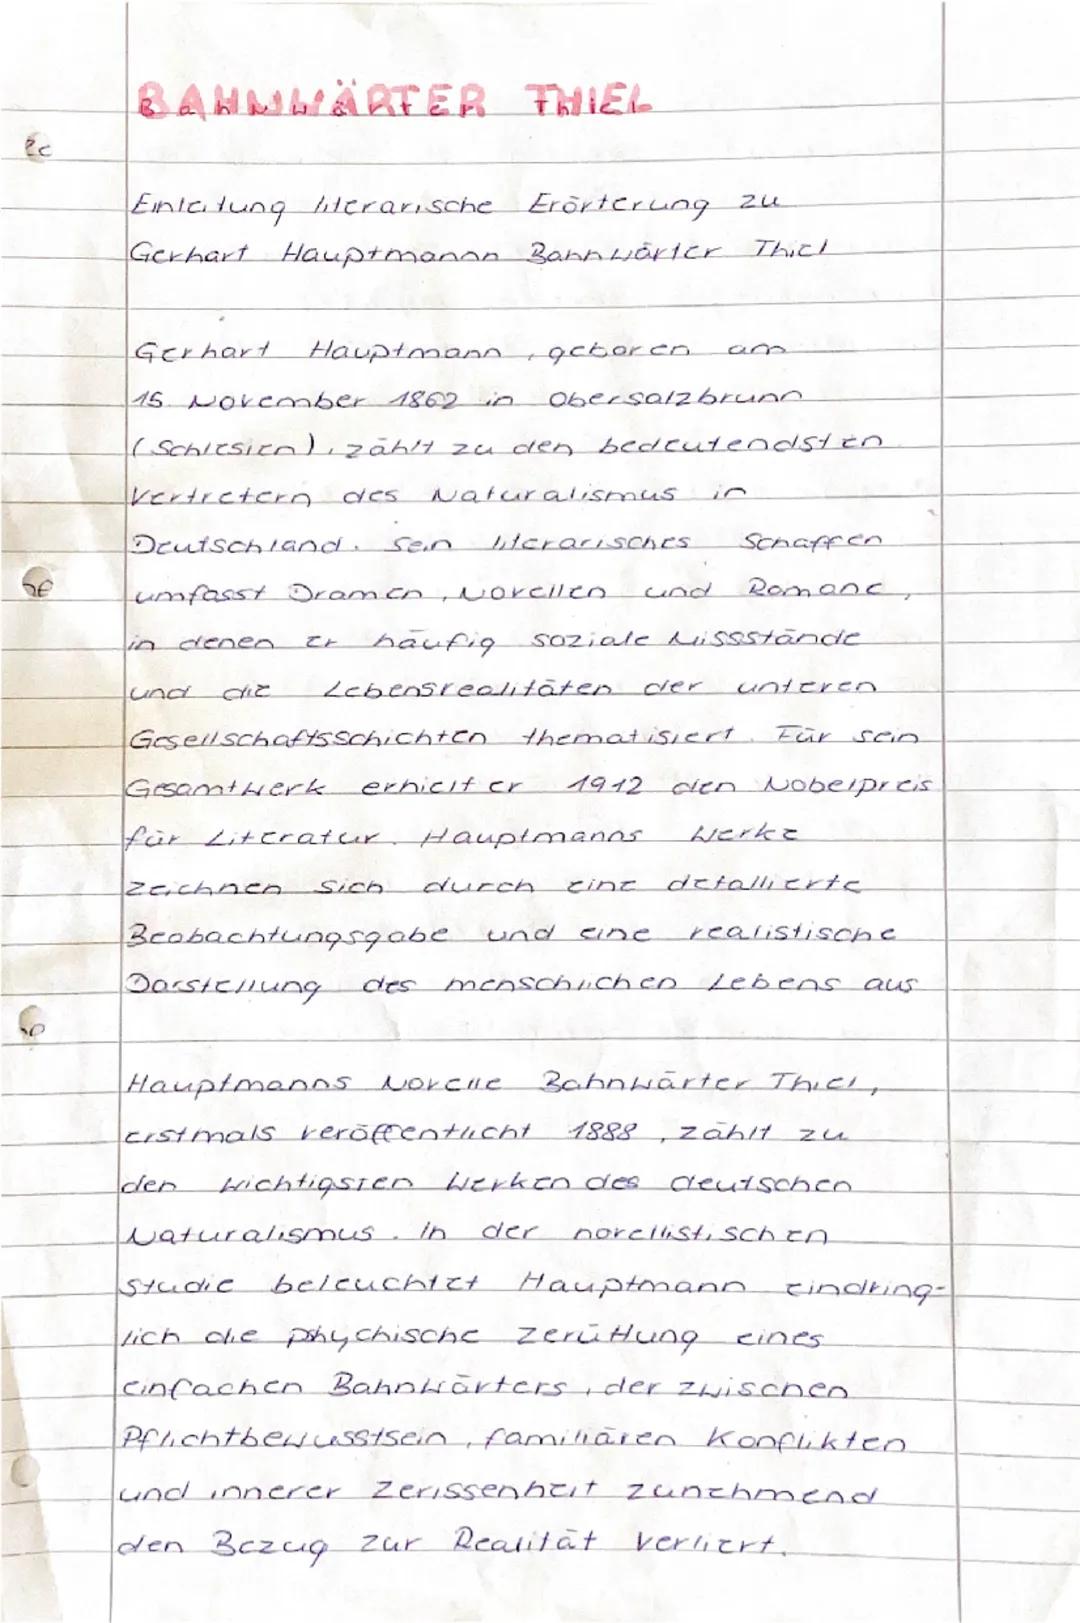 BAHNWÄRTER THIEL
Einleitung literarische Erörterung zu
Gerhart Hauptmann Bahnwärter Thiel
Gerhart Hauptmann, geboren am
15. November 1862 in Obersalzbrunn
(Schlesien), zählt zu den bedeutendsten
Vertretern des Naturalismus in
Deutschland. Sein literarisches Schaffen
umfasst Dramen, Novellen und Romane,
in denen er häufig soziale Missstände
und die Lebensrealitäten der unteren
Gesellschaftsschichten thematisiert. Für sein
Gesamtwerk erhielt er 1912 den Nobelpreis
für Literatur. Hauptmanns Werke
zeichnen sich durch eine detallierte
Beobachtungsgabe und eine realistische
Darstellung des menschlichen Lebens aus
Hauptmanns Novelle Bahnwärter Thiel,
erstmals veröffentlicht 1888, zählt zu
den wichtigsten Werken des deutschen
Naturalismus. In der novellistischen
Studie beleuchtet Hauptmann eindring-
lich die phychische Zerüttung eines
einfachen Bahnwärters, der zwischen
Pflichtbewusstsein, familiären Konflikten
und innerer Zerissenheit zunehmend
den Bezug zur Realität verliert.